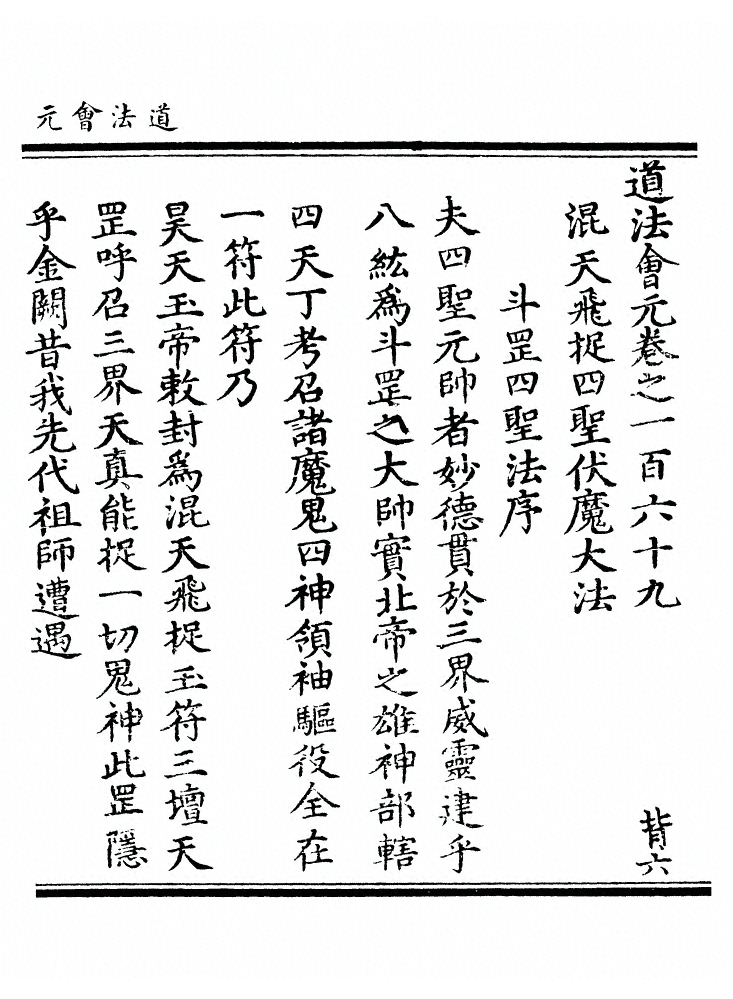 道法會元
道法會元卷之一百六十九
背六
混天飛捉四聖伏魔大法
斗罡四聖法序
夫四聖元帥者妙德貫於三界威靈建乎
八紘為斗罡之大帥實北帝之雄神部轄
四天丁考召諸魔鬼四神領袖驅役全在
一符此符乃
昊天玉帝敕封為混天飛捉玉符三壇天
罡呼召三界天真能捉一切鬼神此罡隱
乎金闕昔我先代祖師遭遇